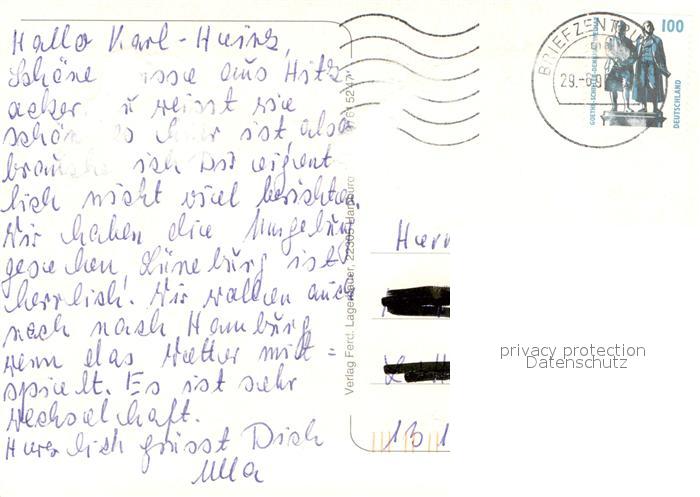 Hallo Karl-Heinz,
Schöne aus Hitz
acker, u weisst wie
schön es hier ist, also
brauche ich Dir eigent
lich nicht viel berichten.
Wir haben die Umgebung
gesehen, Lüneburg ist
herrlich! Wir wollen auch
noch nach Hamburg
wenn das Wetter mit=
spielt. Es ist sehr
wechselhaft.
Herzlich grüsst Dich
Ulla
Verlag Ferd. Lagerbauer, 22305 Hamburg
BRIEFZENTRUM
29.-6.9
100
GOETHE-SCHILLER-DENKMAL
DEUTSCHLAND
Herrn
privacy protection
Datenschutz